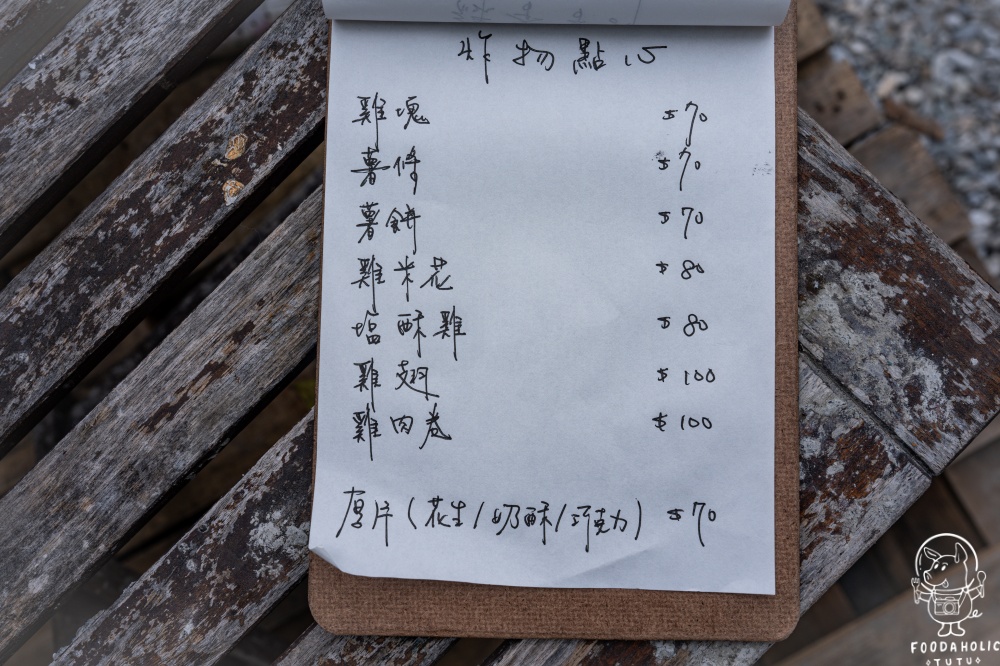 炸物點心
雞塊 $70
薯條 $70
薯餅 $70
雞米花 $80
塩酥雞 $80
雞翅 $100
雞肉卷 $100
厚片(花生/奶酥/巧克力) $70
FOODAHOLIC
TUTU